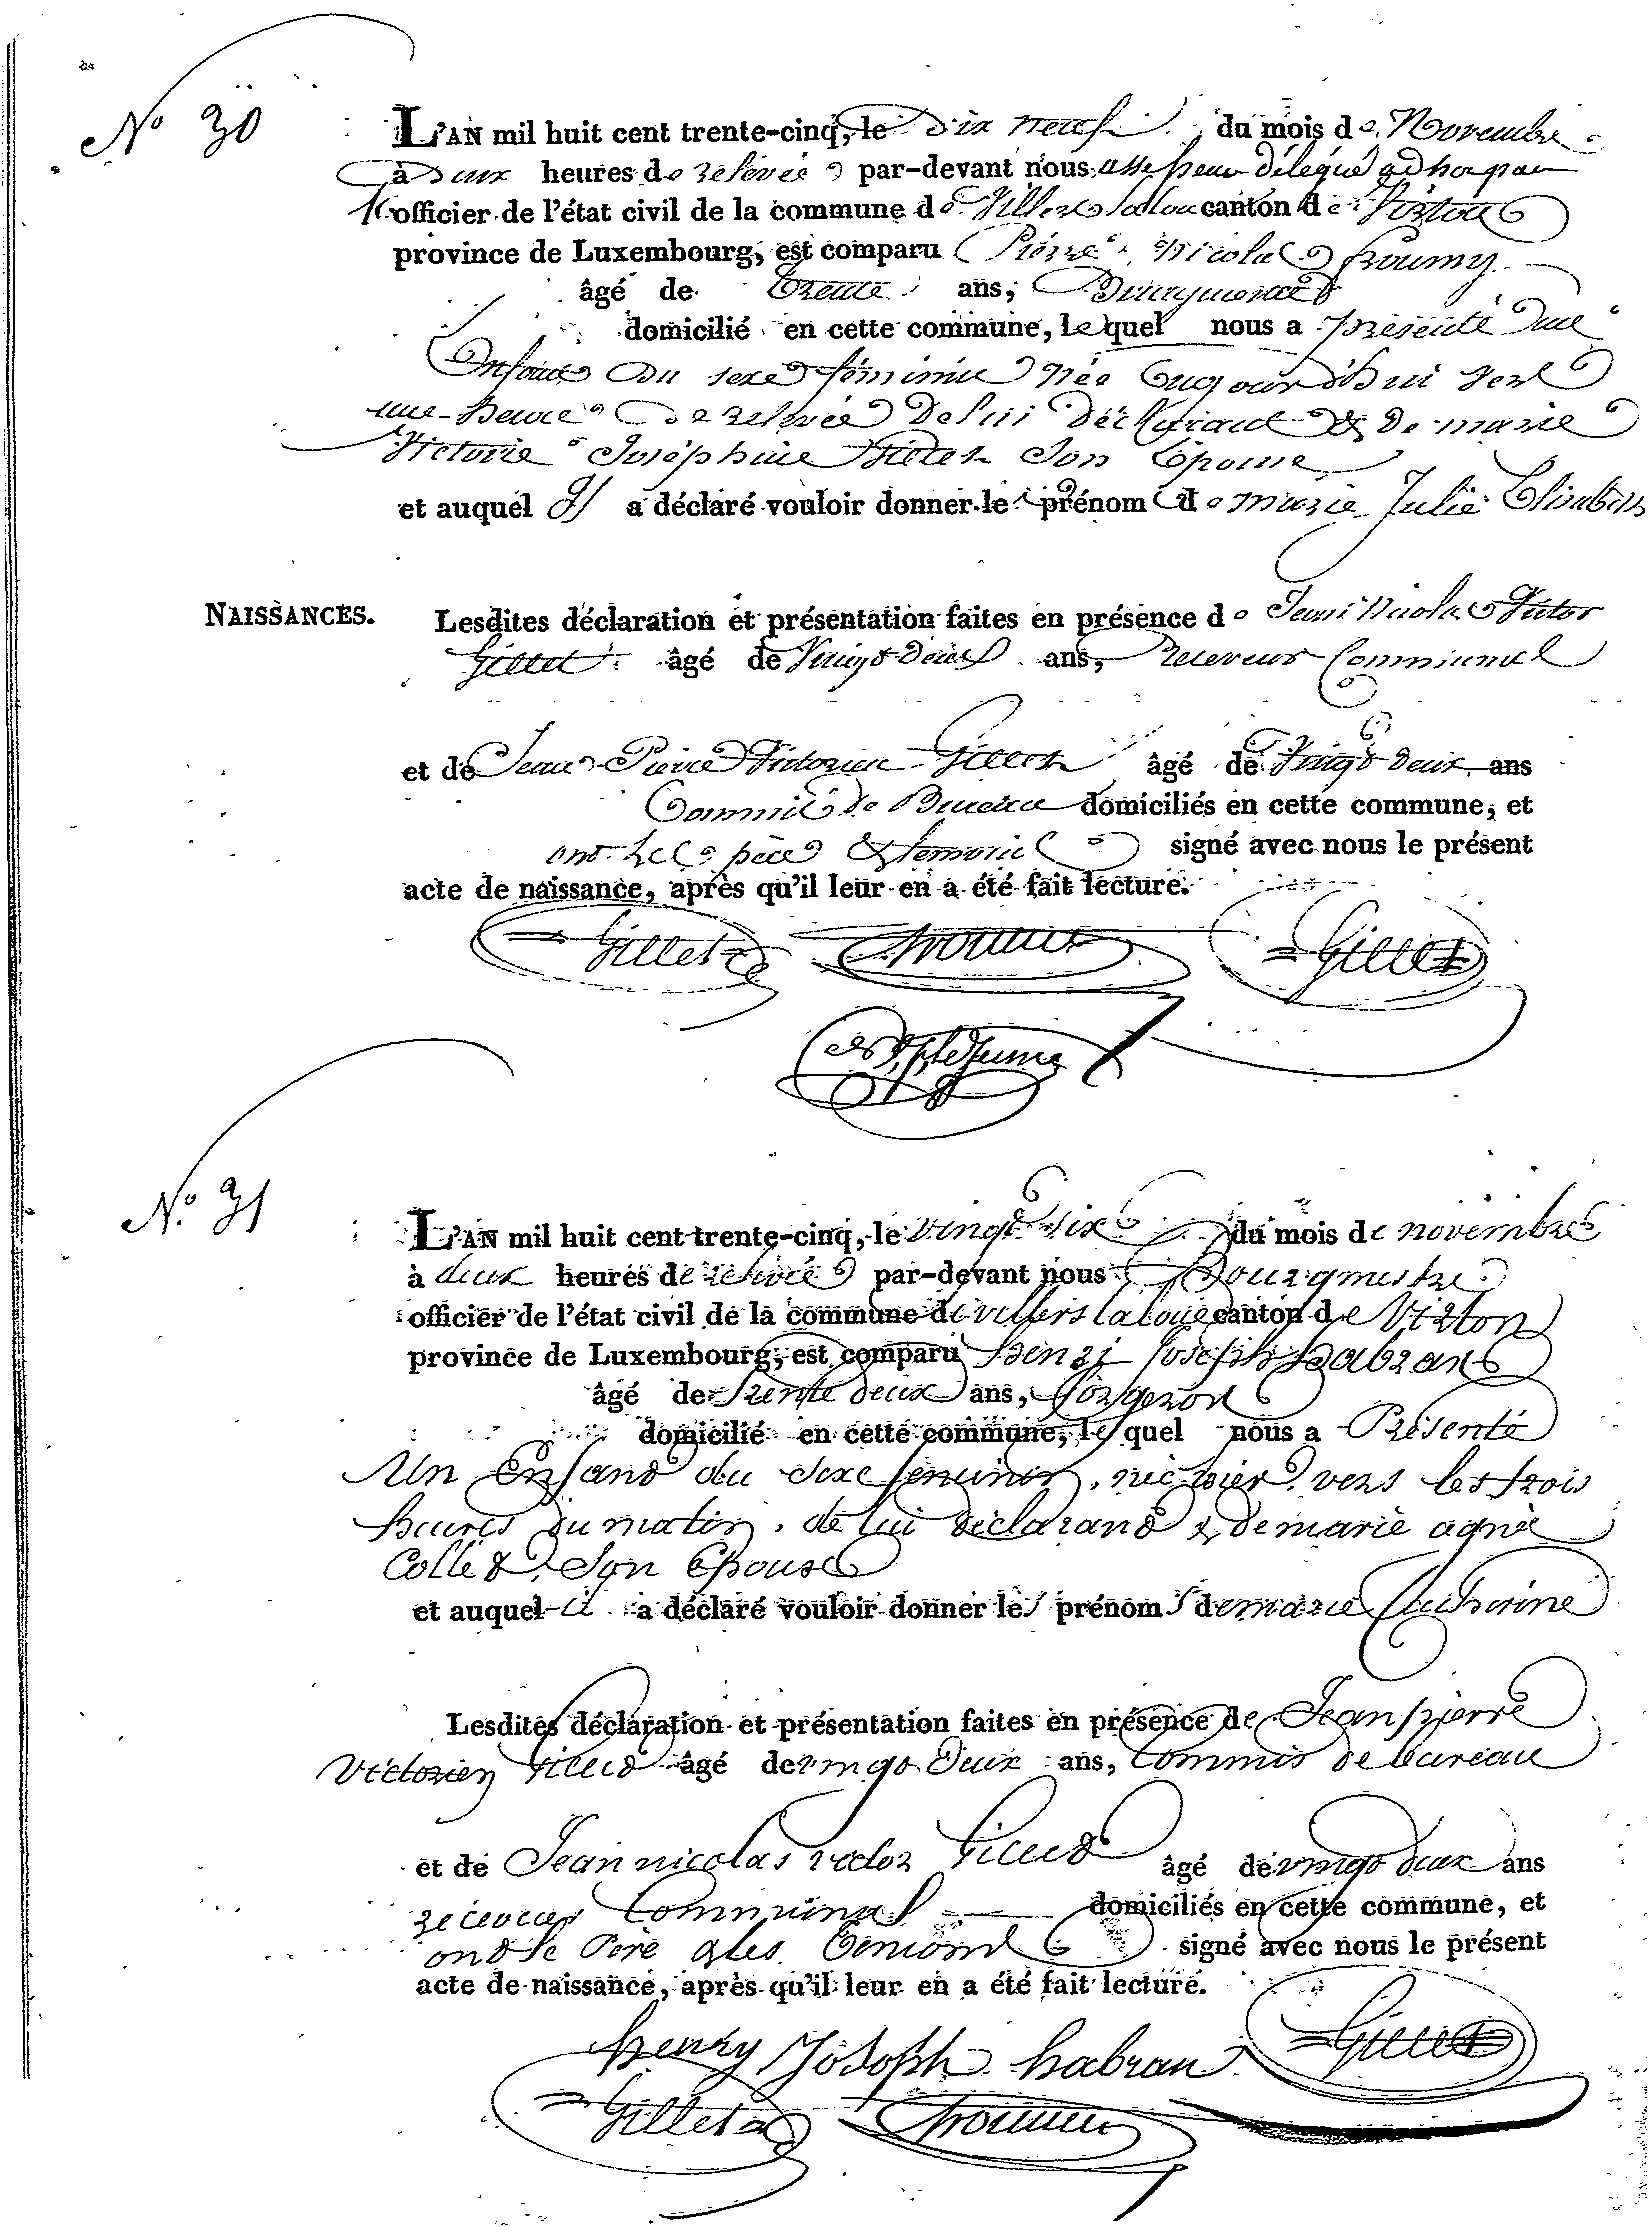 N° 30
L'AN mil huit cent trente-cinq, le dix neuf du mois de Novembre
à deux heures de relevée par-devant nous assesseur délégué ad hoc par
officier de l'état civil de la commune de Villers laloue canton de Virton
province de Luxembourg, est comparu Pierre Nicolas
âgé de trente ans, Bourgmestre
domicilié en cette commune, le quel nous a présenté une
Enfant du sexe féminin née aujourd'hui vers
une heure de relevée de lui déclarant & de marie
Victoire Joséphine Gillet Son Epouse
et auquel il a déclaré vouloir donner les prénom de marie Julie Elisabeth
NAISSANCES.
Lesdites déclaration et présentation faites en présence de Jean Nicolas Victor
Gillet âgé de Vingt deux ans, Receveur Communal
et de Jean Pierre Victorien Gillet âgé de Vingt deux ans
Commis de Bureau domiciliés en cette commune, et
ont les père & témoins signé avec nous le présent
acte de naissance, après qu'il leur en a été fait lecture.
Gillet Gillet
N° 31
L'AN mil huit cent trente-cinq, le vingt six du mois de novembre
à deux heures de relevée par-devant nous Bourgmestre
officier de l'état civil de la commune de villers laloue canton de Virton
province de Luxembourg, est comparu henri Joseph habran
âgé de trente deux ans, forgeron
domicilié en cette commune, le quel nous a Présenté
Un Enfant du sexe feminin, née hier, vers les trois
heures du matin, de lui déclarant & de marie agnès
Collet, Son Epouse
et auquel il a déclaré vouloir donner les prénoms de marie Catherine
Lesdites déclaration et présentation faites en présence de Jean pierre
Victorien Gillet âgé de vingt deux ans, Commis de bureau
et de Jean nicolas victor Gillet âgé de vingt deux ans
receveur Communal domiciliés en cette commune, et
ont le Père & les témoins signé avec nous le présent
acte de naissance, après qu'il leur en a été fait lecture.
henry Joseph habran Gillet
Gillet